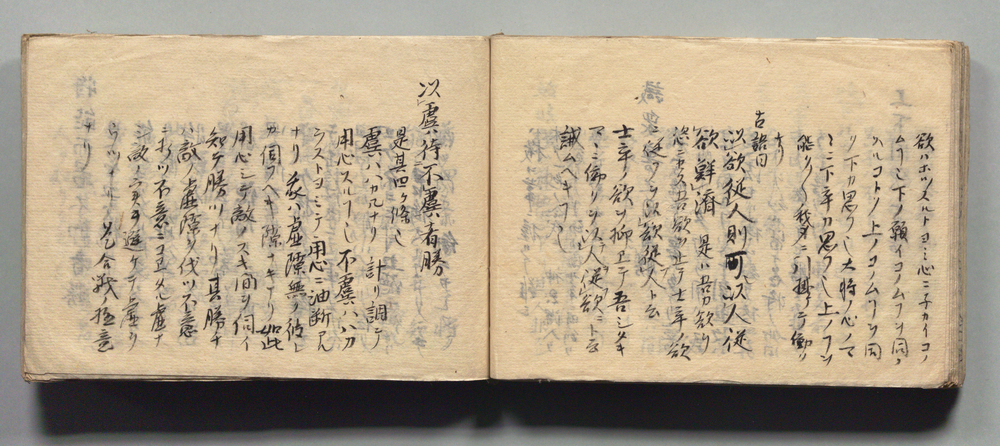 欲ハホツスルトヨミ心ニチカイコノ
ムヿ上下ノ願イコノムヿヲ同ク
スルコトソ上ノコノムヿヲ同
ク下カ思ク乄大将ノ心ノマ
マニ下卒カ思ク乄上ノヿヲ
能ク〱我身ニ引掛テ働ク
ナリ
古語曰
以欲従人則可以人従
欲鮮済 是ハ吾カ欲ヲ
恣ニセス吾欲ヲ止テ士卒ノ欲
ニ従フヲ以欲従人ト云
士卒ノ欲ヲ抑エテ吾シタキ
マヽニ働クヲ以人従欲ト云
誡ムヘキヿ乄
以虞待不虞者勝
是其四ケ條乄
虞ハハカルナリ 計リ調テ
用心スルヿ乄 不虞ハハカ
ラストヨミテ用心ニ油断アル
ナリ 我ハ虚隙無ク彼レ
カ伺フヘキ隙ナキナリ 如此
用心シテ敵ノスキ間ヲ伺イ
知テ勝ツナリ 其勝ナ
ハ敵ノ虚隙ヲ伐ツ不意
ニ打ツ不意ニコエタル虚ナ
シ敵ノ実ヲ避ケテ虚ヲ
ウツナル 是合戦ノ極意
ナリ